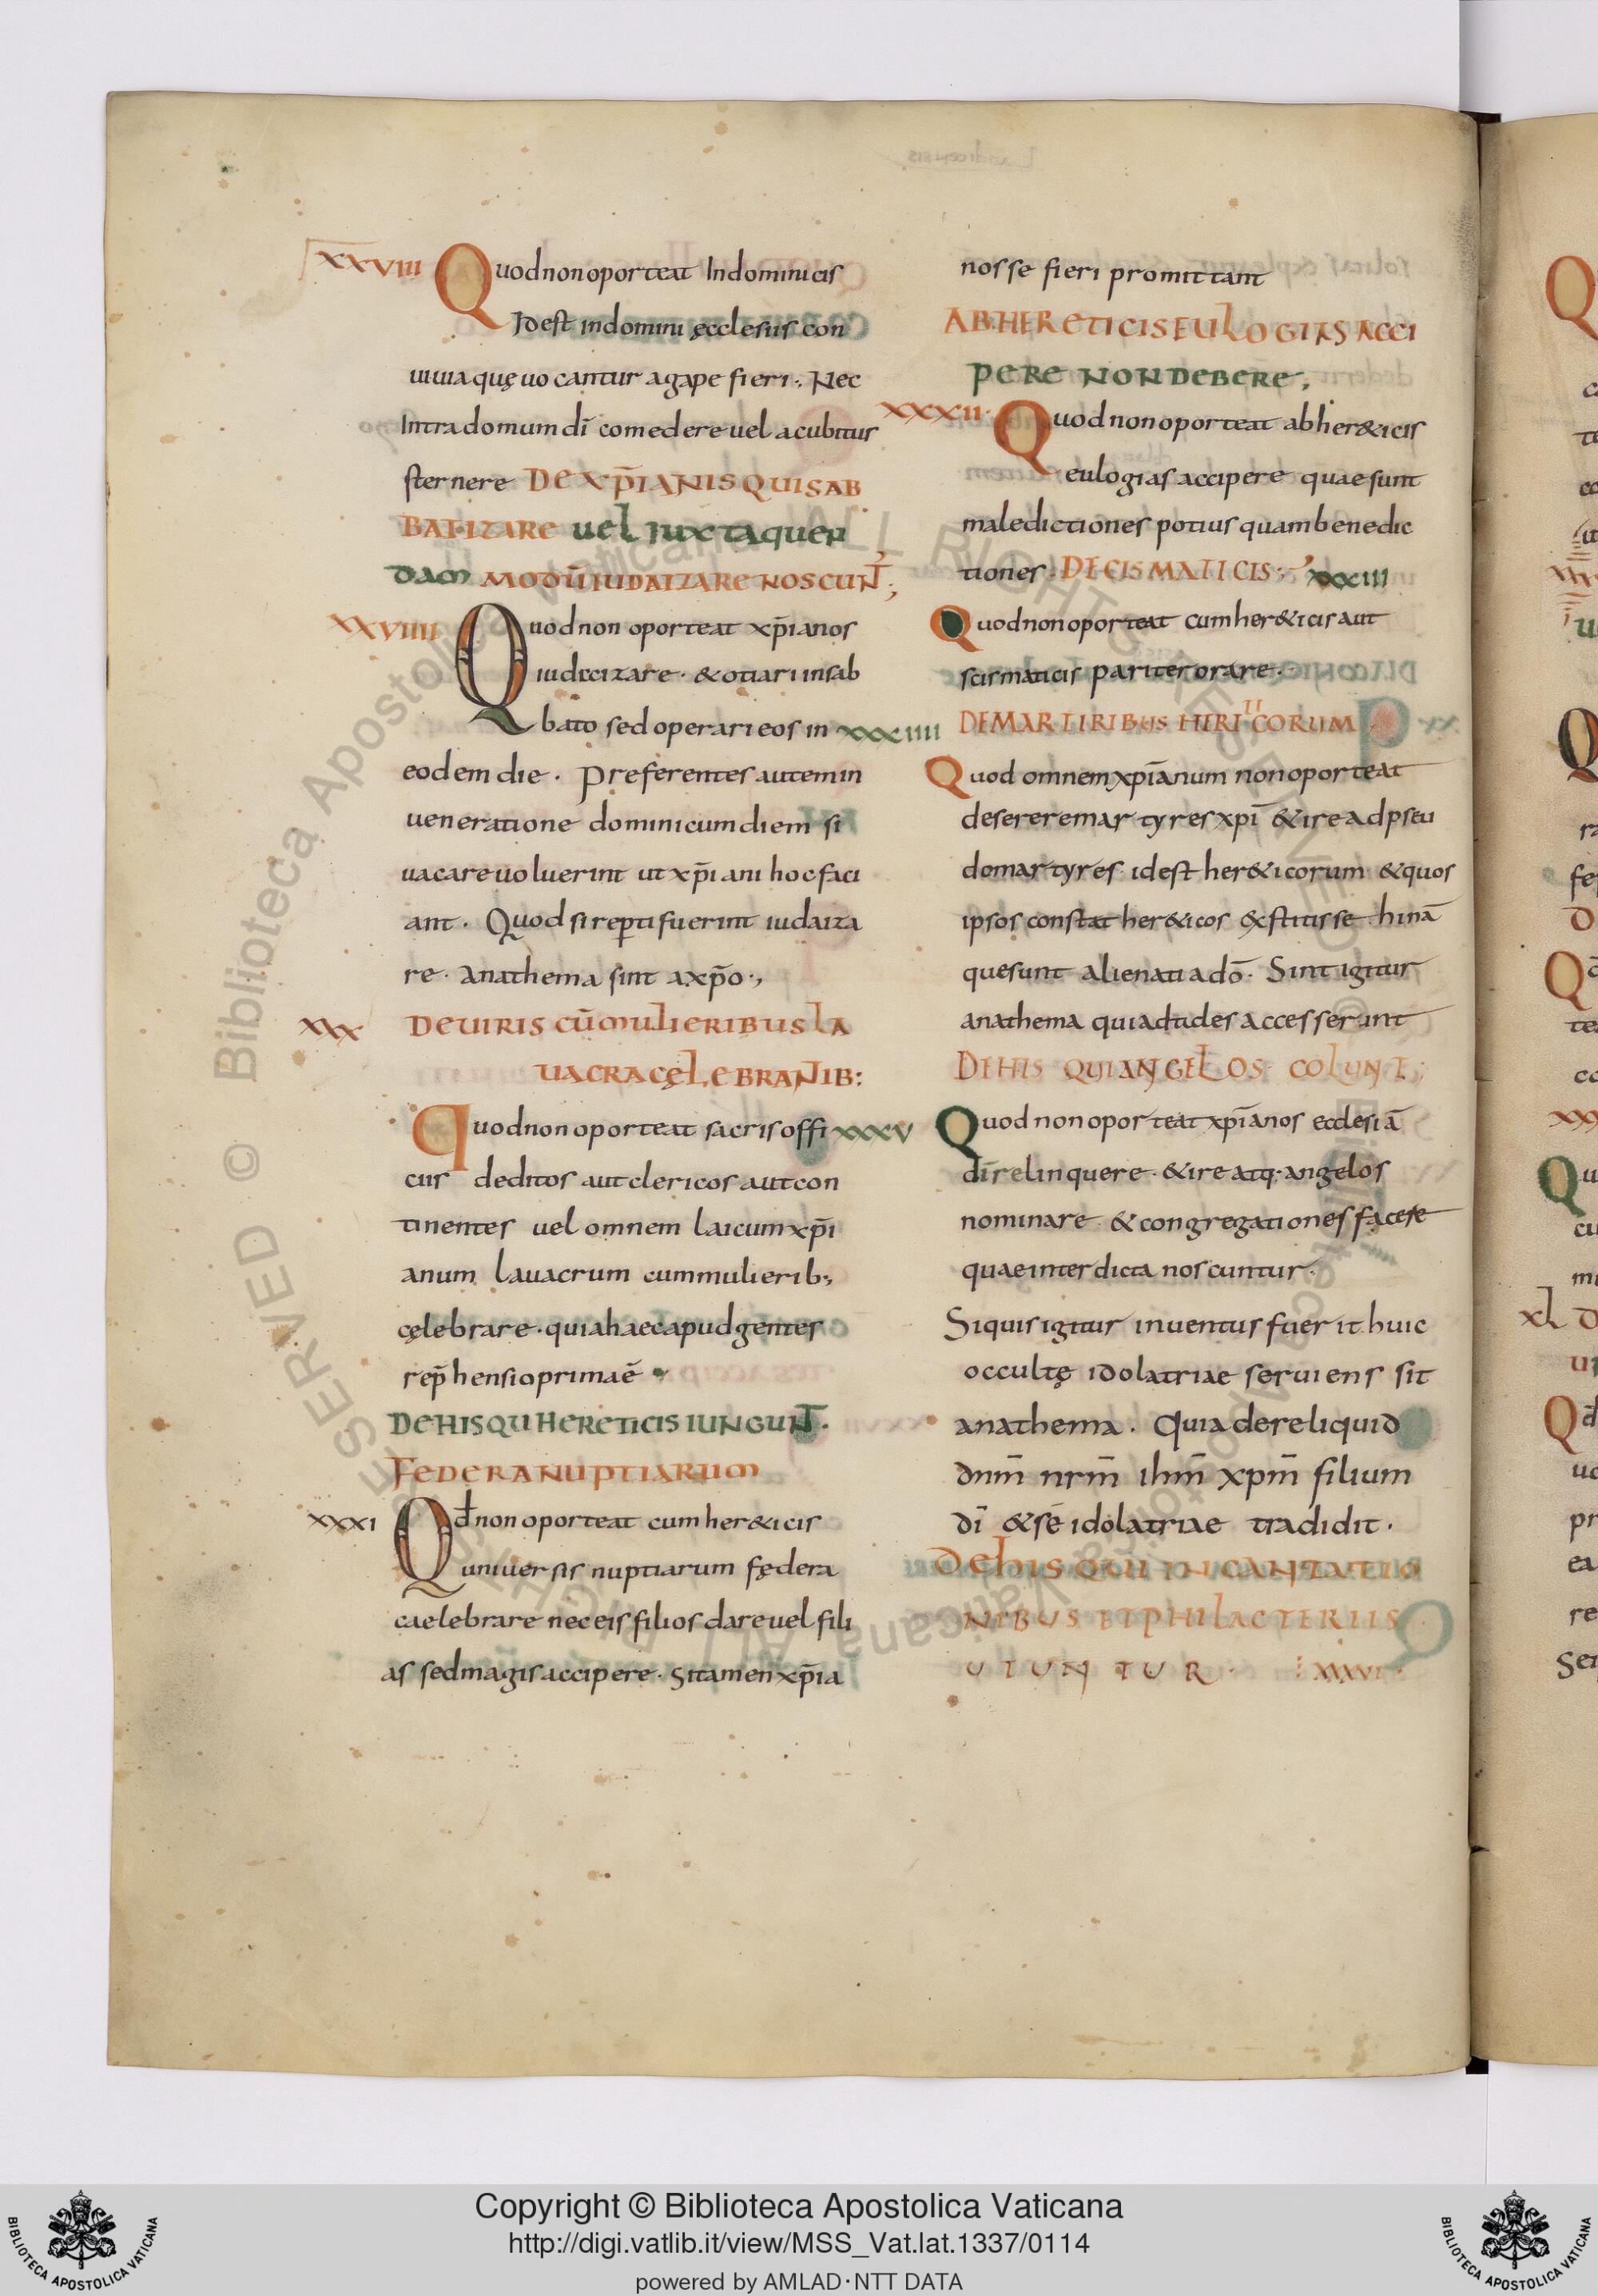 XXVIII Quod non oporteat In dominicis
Id est in domini ęcclesiis con
uiuia quę uocantur agape fieri·, Nec
Intra domum dī comedere uel acubitus
sternere DE XP̄IANIS QUI SAB
BATIZARE uel IUXTA quen
dam MODŪ IUDAIZARE NOSCUNT;
XXVIIII Quod non oporteat xp̄ianos
iudecizare· & otiari in sab
bato sed operari eos in
eodem die· Preferentes autem in
ueneratione dominicum diem si
uacare uoluerint ut xp̄iani hoc faci
ant· Quod si repti fuerint iudaiza
re· anathema sint a xp̄o·,
XXX DE UIRIS CŪ MULIERIBUS LA
UACRA CĘLEBRANTIB:
quod non oporteat sacris offi
ciis deditos aut clericos aut con
tinentes uel omnem laicum xp̄i
anum lauacrum cum mulierib;,
cęlebrare· quia haec apud gentes
rep̄hensio prima ē
DE HIS QUI HERETICIS IUNGUNT·
FEDERA NUPTIARUM
XXXI Qđ non oporteat cum her&icis
uniuersis nuptiarum fędera
caelebrare nec eis filios dare uel fili
as sed magis accipere· Si tamen xp̄ia
nos se fieri promittant
AB HERETICIS EULOGIAS ACCI
PERE NON DEBERE,
XXXII· Quod non oporteat ab her&icis
eulogias accipere quae sunt
maledictiones potius quam benedic
tiones· DE CISMATICIS; XXXIII
Quod non oporteat cum her&icis aut
scismaticis pariter orare·
XXXIIII DE MARTIRIBUS HERITICORUM
Quod omnem xpīanum non oporteat
deserere martyres xpī & ire ad pseu
domartyres· id est her&icorum & quos
ipsos constat her&icos &stitisse hi nā
que sunt alienati a dō· Sint igitur
anathema qui ad tides accesserint
DE HIS QUI ANGELOS COLUNT;
XXXV Quod non oporteat xpīanos ecclesiā
dī relinquere· & ire atq; angelos
nominare & congregationes facere
quae interdicta noscuntur·
Siquis igitur inuentus fuerit huic
occultę idolatriae seruiens sit
anathema· Quia dereliquid
dnm̄ nrm̄ ihm̄ xpm̄ filium
dī & se idolatriae tradidit·
DE HIS QUI INCANTATIO
NIBUS ET PHILACTERIIS
UTUNTUR· XXXVI·
Copyright © Biblioteca Apostolica Vaticana
http://digi.vatlib.it/view/MSS_Vat.lat.1337/0114
powered by AMLAD·NTT DATA
BIBLIOTECA APOSTOLICA VATICANA
BIBLIOTECA APOSTOLICA VATICANA